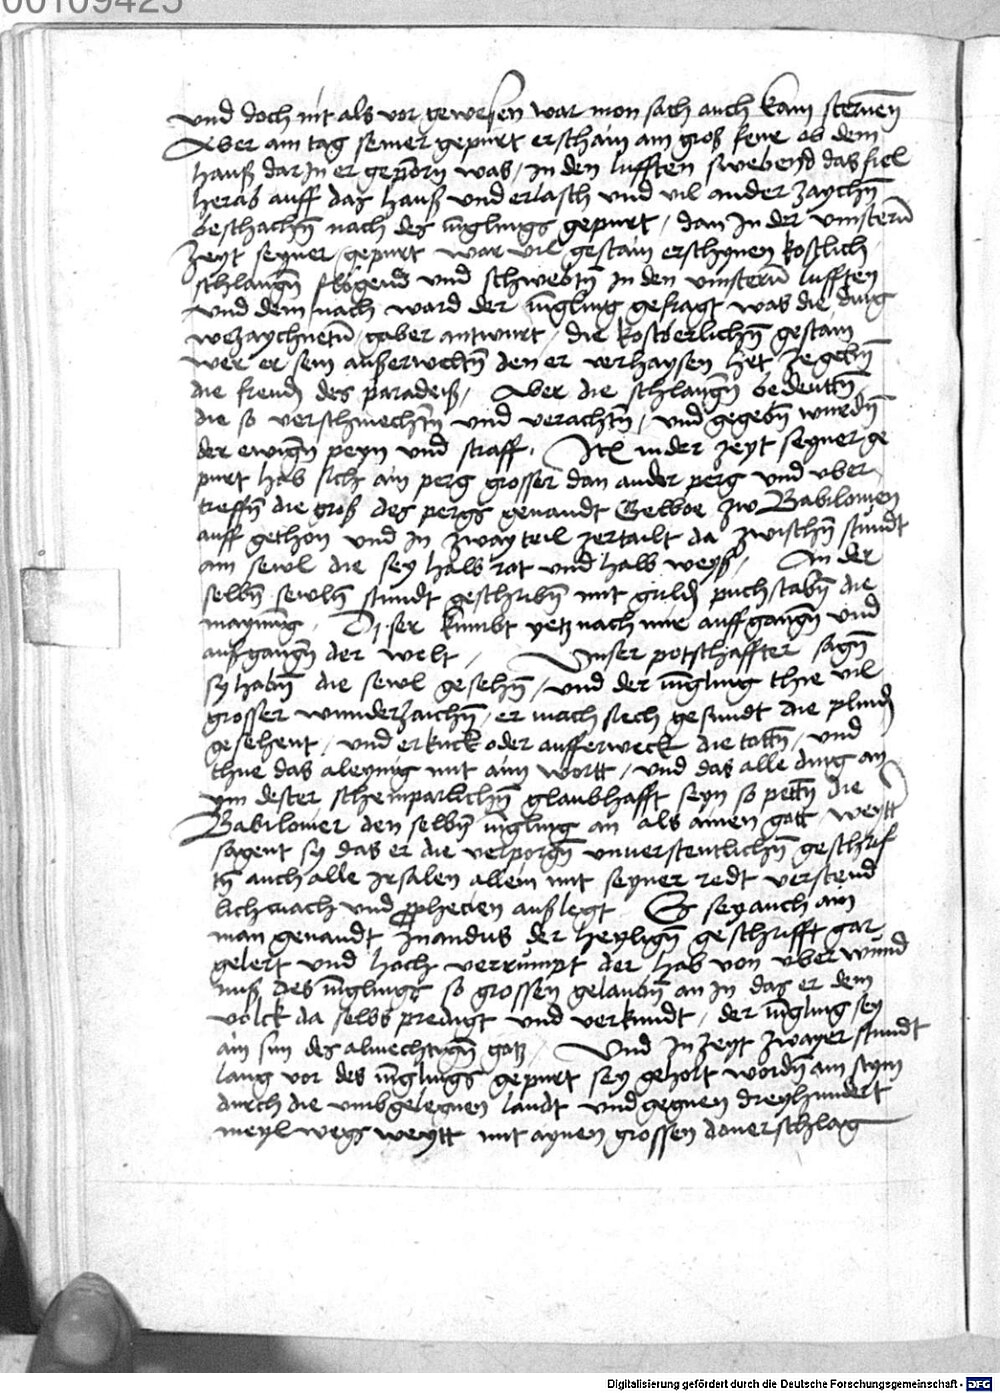 00109425
und doch nit als vor gewesen war mon sach auch kain sternen̄
Aber am tag seiner gepurt erschain ain groß feue ob dem
hauß dar in er geporn was / in den lufften swebend das fiel
herab auff das hauß und erlasch und vil ander zaychn̄
beschachn̄ nach des iu̅glings gepurt / dan in der vinstern̄
zeyt seyner gepurt war vil gestain erschynen kostlich
schlangn̄ flögend und schwebtn̄ in den vinstern̄ lufften
und dem nach ward der iu̅gling gefragt was die ding
wezaychnetn̄ / gaber antwurt / die kostberlichn̄ gestain
wer er sein außerweltn̄ den er verhaysen het zegebn̄
die freud des paradeiß / Aber die schlangn̄ bedeuttn̄
die so verschmechtn̄ und verachtn̄ / und gegebn̄ wurdn̄
der ewign̄ peyn und straff . Ite̅ in der zeyt seyner ge
purt hab sich ain perg grosser dan ander perg und uber
treffn̄ die groß des pergs genandt Gelboe zw Babilonien
auff gethon und in zway teil zertailt da zwischn̄ stundt
ain sewl die sey halb rot und halb weyß / An der
selbn̄ sewln̄ stundt geschribn̄ mit guldn̄ puchstabn̄ die
maynu̅g . Diser kumbt yetz nach mir auffgangn̄ und
außgangn̄ der welt / Unser potschaffter sagn̄
sy habn̄ die sewl gesehn̄ / und der iu̅gling thie vil
grosser wunderzaichn̄ / er mach siech gesundt die plindn̄
gesehent / und erkuck oder aufferweck die tottn̄ / und
thue das aleynig mit aim wortt / und das alle ding an
ym dester scheinparlichn̄ glaubhafft seyn so pettn̄ die
Babilonier den selbn̄ iu̅gling an als ainen gott weytt
sagent sy das er die verporgn̄ unverstentlichn̄ geschrif
tn̄ auch alle irsalen allein mit seyner redt verstend
lich mach und prophecien außlegt Es sey auch ain
man genandt Inandus der heylign̄ geschrifft gar
gelert und hoch verrumpt der hab von uberwund
nuß des iu̅glings so grossen gelaubn̄ an in das er dem
volck da selbs predigt und verkundt / der iu̅gling sey
ain sun des almechtign̄ gotz / Und in zeyt zwayer stundt
lang vor des iu̅glings gepurt sey gehort wordn̄ ain stym
durch die umbgelegnen landt und gegnen dreyhundert
meyl wegs weytt mit aynen grossen donerschlag
Digitalisierung gefördert durch die Deutsche Forschungsgemeinschaft - DFG